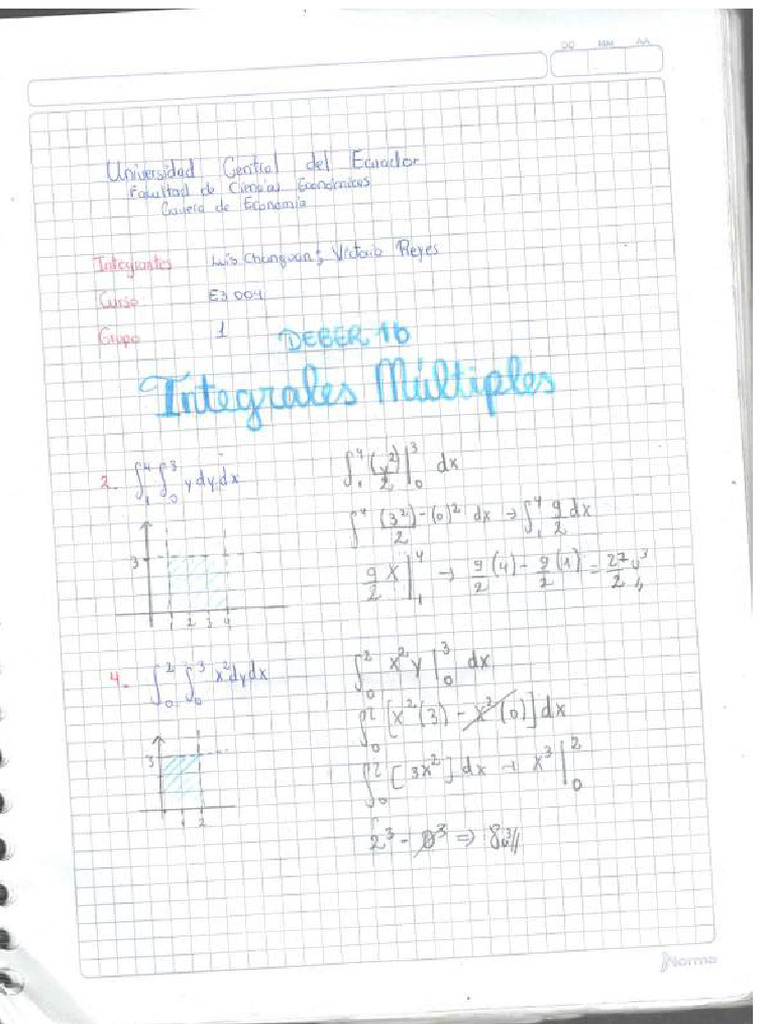 DD MM AA
Universidad Central del Ecuador
Facultad de Ciencias Económicas
Carrera de Economía
Integrantes Luis Changuan; Victoria Reyes
Curso E3 004
Grupo 1
DEBER 16
Integrales Múltiples
2.- ∫₁⁴ ∫₀³ y dy dx
∫₁⁴ (y²)/2 |₀³ dx
∫⁴ (3²)-(0)²/2 dx → ∫₁⁴ 9/2 dx
9/2 x |₁⁴ → 9/2 (4) - 9/2 (1) = 27/2 u³
3
1 2 3 4
4.- ∫₀² ∫₀³ x² dy dx
∫₀² x² y |₀³ dx
∫₀² [x² (3) - x² (0)] dx
∫₀² [3x²] dx → x³ |₀²
2³ - 0³ ⇒ 8u³
3
1 2
Norma